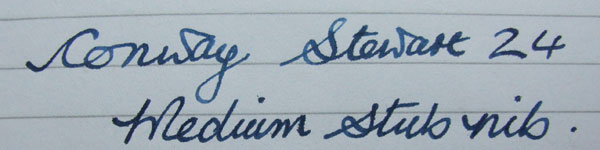 Conway Stewart 24
Medium Stub nib.